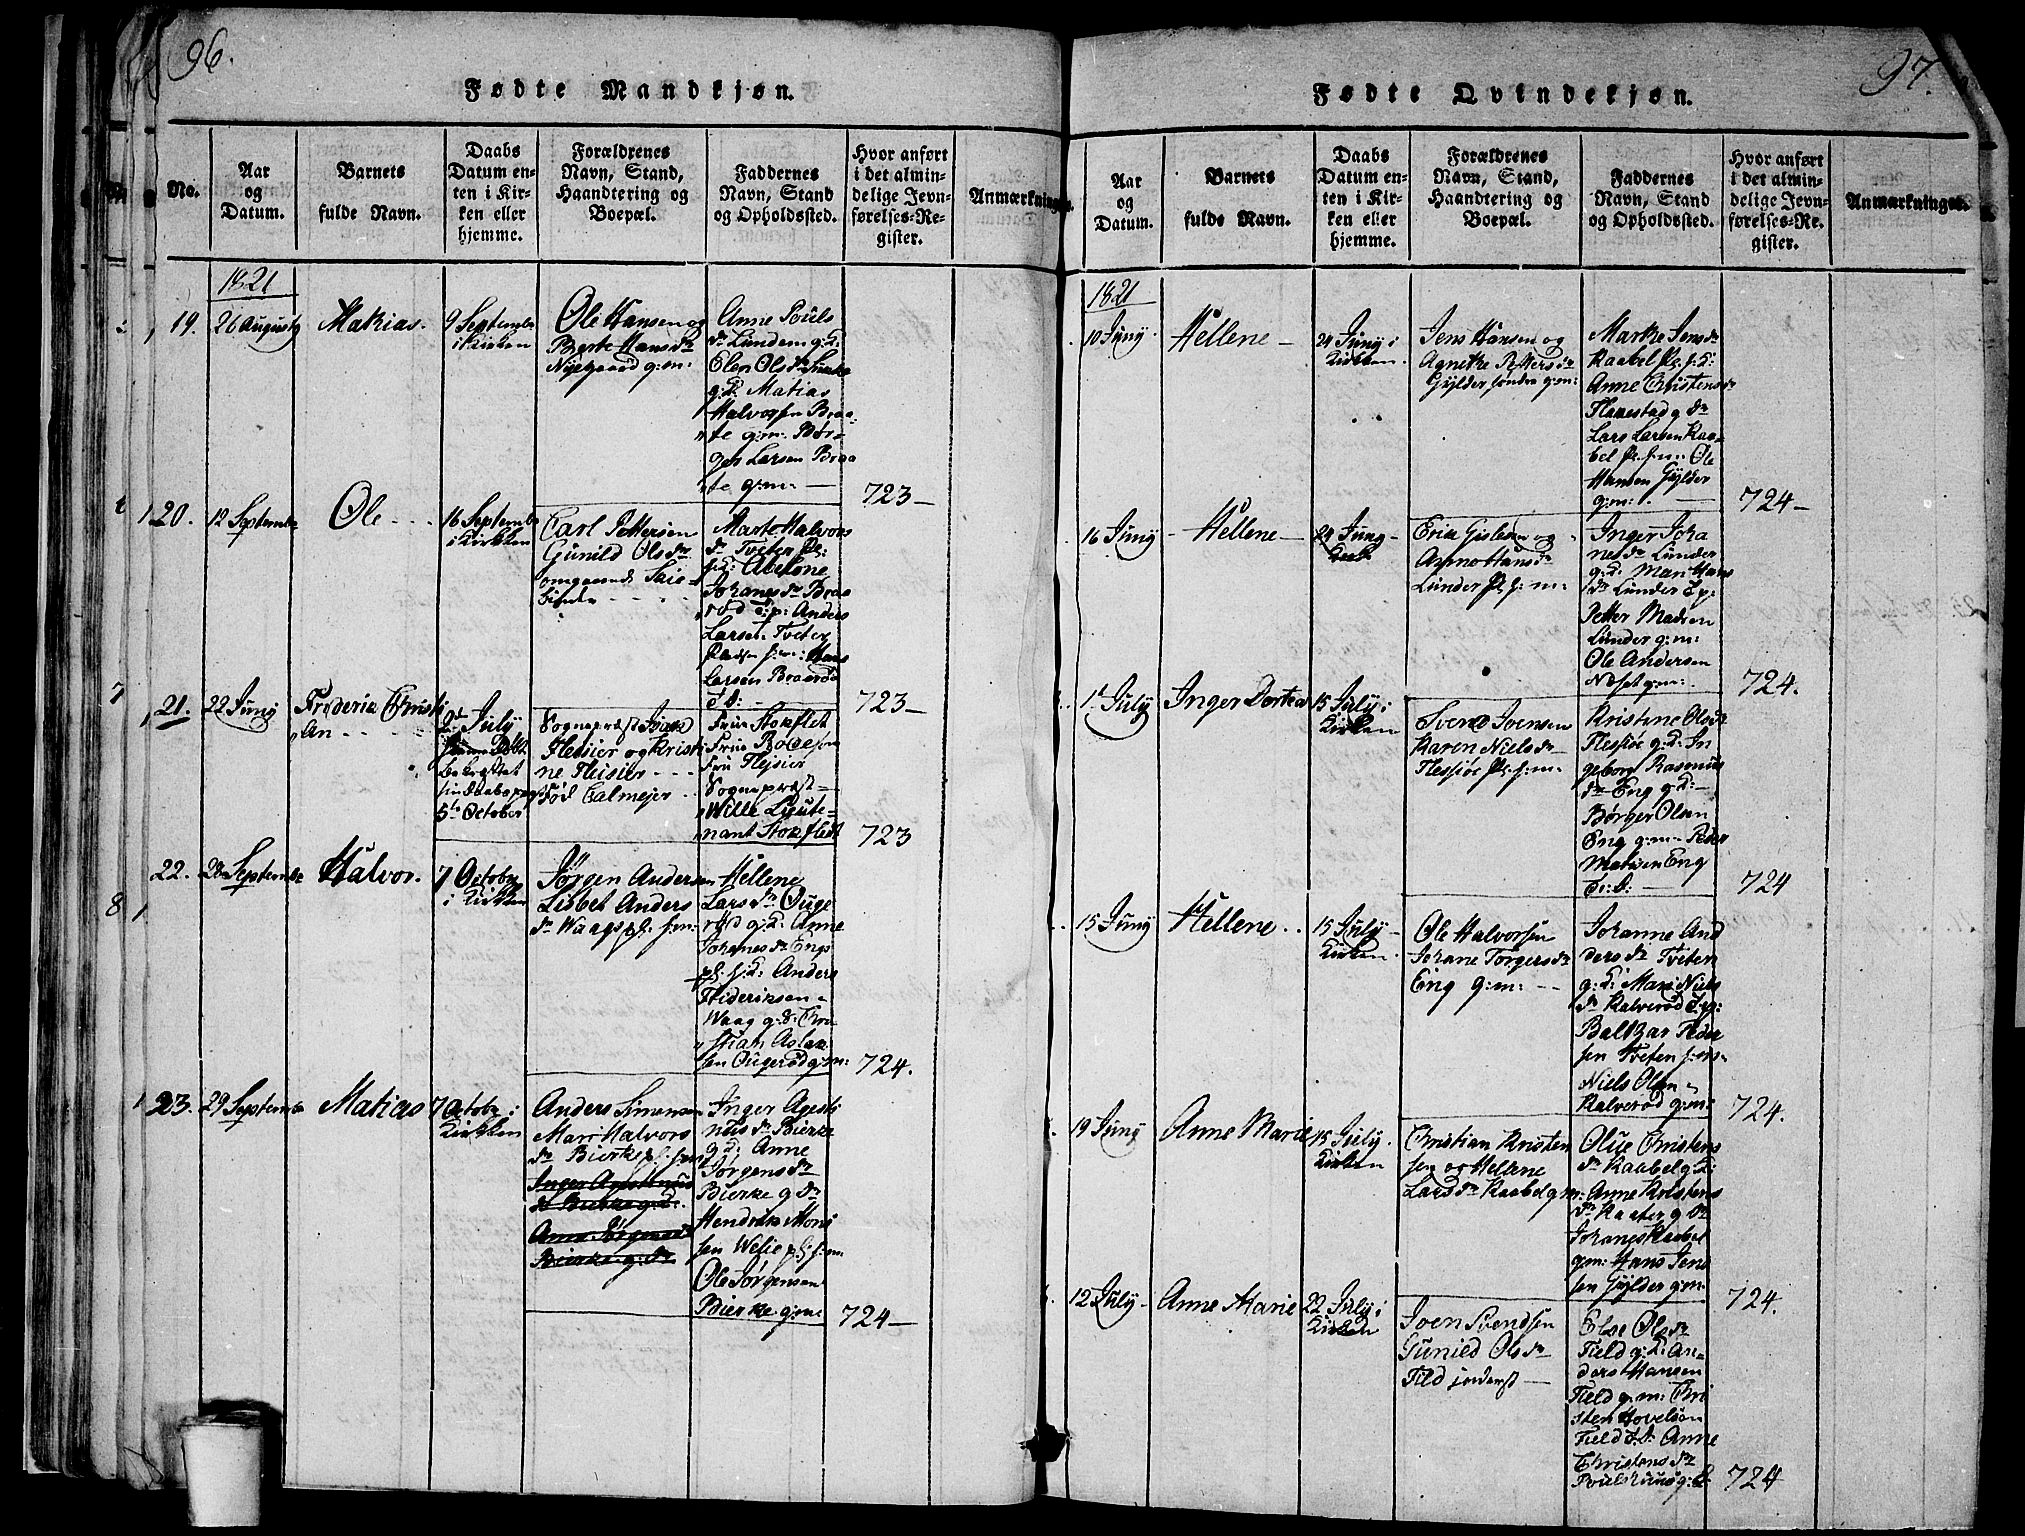 96.
Fødte Mandkjøn.
No.
Aar
og
Datum.
Barnets
fulde Navn.
Daabs
Datum en-
ten i Kir-
ken eller
hjemme.
Forældrenes
Navn, Stand,
Haandtering og
Boepæl.
Faddernes
Navn, Stand
og Opholdssted.
Hvor anført
i det almin-
delige Jevn-
førelses-Re-
gister.
Anmærkninger.
1821
19.
26 Augusty
Mathias.
9 Septembr
i Kirken
Ole Hansen og
Berte Hans dr
Nyegaard g:m:
Anne Pouls
dr Lundem g:d:
Elen Ols dr
g:d: Matias
Halvorsen Braa-
te g:m: Bør-
ger Larsen Braa
te g:m: —
723—
20.
12 Septembr
Ole
16 Septembr
i Kirkken
Carl Pettersen
Gunild Ols dr
omgaaende
Marte Halvors
dr Tveten Pl:
f:d: Abelone
Johanes dr Braa
rød t:p: Anders
Larsen Tveter
Pladsen f:m: Hans
Larsen Braarød
t:d:
723—
21.
22 Juny
Frederic Christi
an
July
bekræftet
5te October
Sognepræst
Flejsier og Kristi
ne Flejsier
Fød Calmejer
Frue Stokflet
Frue Boldesen
Fru Flejsier
Sognepræst
Wille Lieute-
nant Stokflet
723
22.
28 Septembr
Halvor.
7 October
i Kirkken
Jørgen Andersen
Lisbet Anders
dr Waags pl: f:m:
Hellene
Lars dr Ouge
rød g:d: Anne
Johanes dr Engs
pl: f:d: Anders
Frideriksen
Waag g:d: Chri
stian Aslak
sen Ougerød g:m:
724.
23.
29 Septembr
Matias
7 October i
Kirkken
Anders Simensen
Mari Halvors
dr Bierke pl: f:m:
Inger Agesti
nus dr Bierke
g:d: Anne
Jørgens dr
Bierke g dr
Hendrik Moni
sen Wesie pl: f:m
Ole Jørgensen
Bierke g:m:
724—
97.
Fødte Qvindekjøn.
Aar
og
Datum.
Barnets
fulde Navn.
Daabs
Datum en-
ten i Kir-
ken eller
hjemme.
Forældrenes
Navn, Stand,
Haandtering og
Boepæl.
Faddernes
Navn, Stand
og Opholdssted.
Hvor anført
i det almin-
delige Jevn-
førelses-Re-
gister.
Anmærkninger.
1821
10 Juny
Hellene —
24 Juny i
Kirkken.
Jens Hansen og
Agnethe Petters dr
Gylder søndre g:m:
Marthe Jens dr
Kaabel Pl: f:d:
Anne Christens dr
Flaaestad g dr
Lars Larsen Kaa-
bel Pl: f:m: Ole
Hansen Gylder
g:m:
724—
16 Juny
Hellene —
24 Juny
Kirk
Eric Gislesen og
Anne Hans dr
Lunder Pl: f: m:
Inger Joha
nes dr Lunder
g:d: Mari Hans
dr Lunder t:p:
Petter Madsen
Lunder g:m:
Ole Andersen
Næset g:m:
724.
1st July
Inger Dortea
15 July i
Kirkken
Svend Joensen
Karen Niels dr
Flessiøe Pl: f:m:
Kristine Ols dr
Flessiøe g:d: In
geborg Rasmus
dr Eng g:d:
Børger Olsen
Eng g:m: Peder
Matisen Eng
t:d:
724
15 Juny
Hellene
15 July
Kirkken.
Ole Halvorsen
Johane Torgers dr
Eng g:m:
Johanne And
ders dr Tveten
g:d: Mari Niels
dr Kalverød t:p:
Baltzar Peder
sen Tveten f:m:
Niels Olsen
Kalverød g:m:
724.
19 Juny
Anne Marie
15 July.
Kirkken
Christian Kristen
sen og Hellene
Lars dr Kaabel g:m:
Olue Christens
dr Kaabel g:d:
Anne Kristens
dr Kaater g dr
Johanes Kaabel
g:m: Hans Jens
sen Gylder g:m:
724.
12 July
Anne Marie
22 July i
Kirkken
Joen Svendsen
Gunild Ols dr
Field inderst —
Else Ols dr
Field g:d: An-
ders Hansen
Field g:m: Chri
sten Hovelsen
Field t:d: Anne
Christens dr
g:d:
724